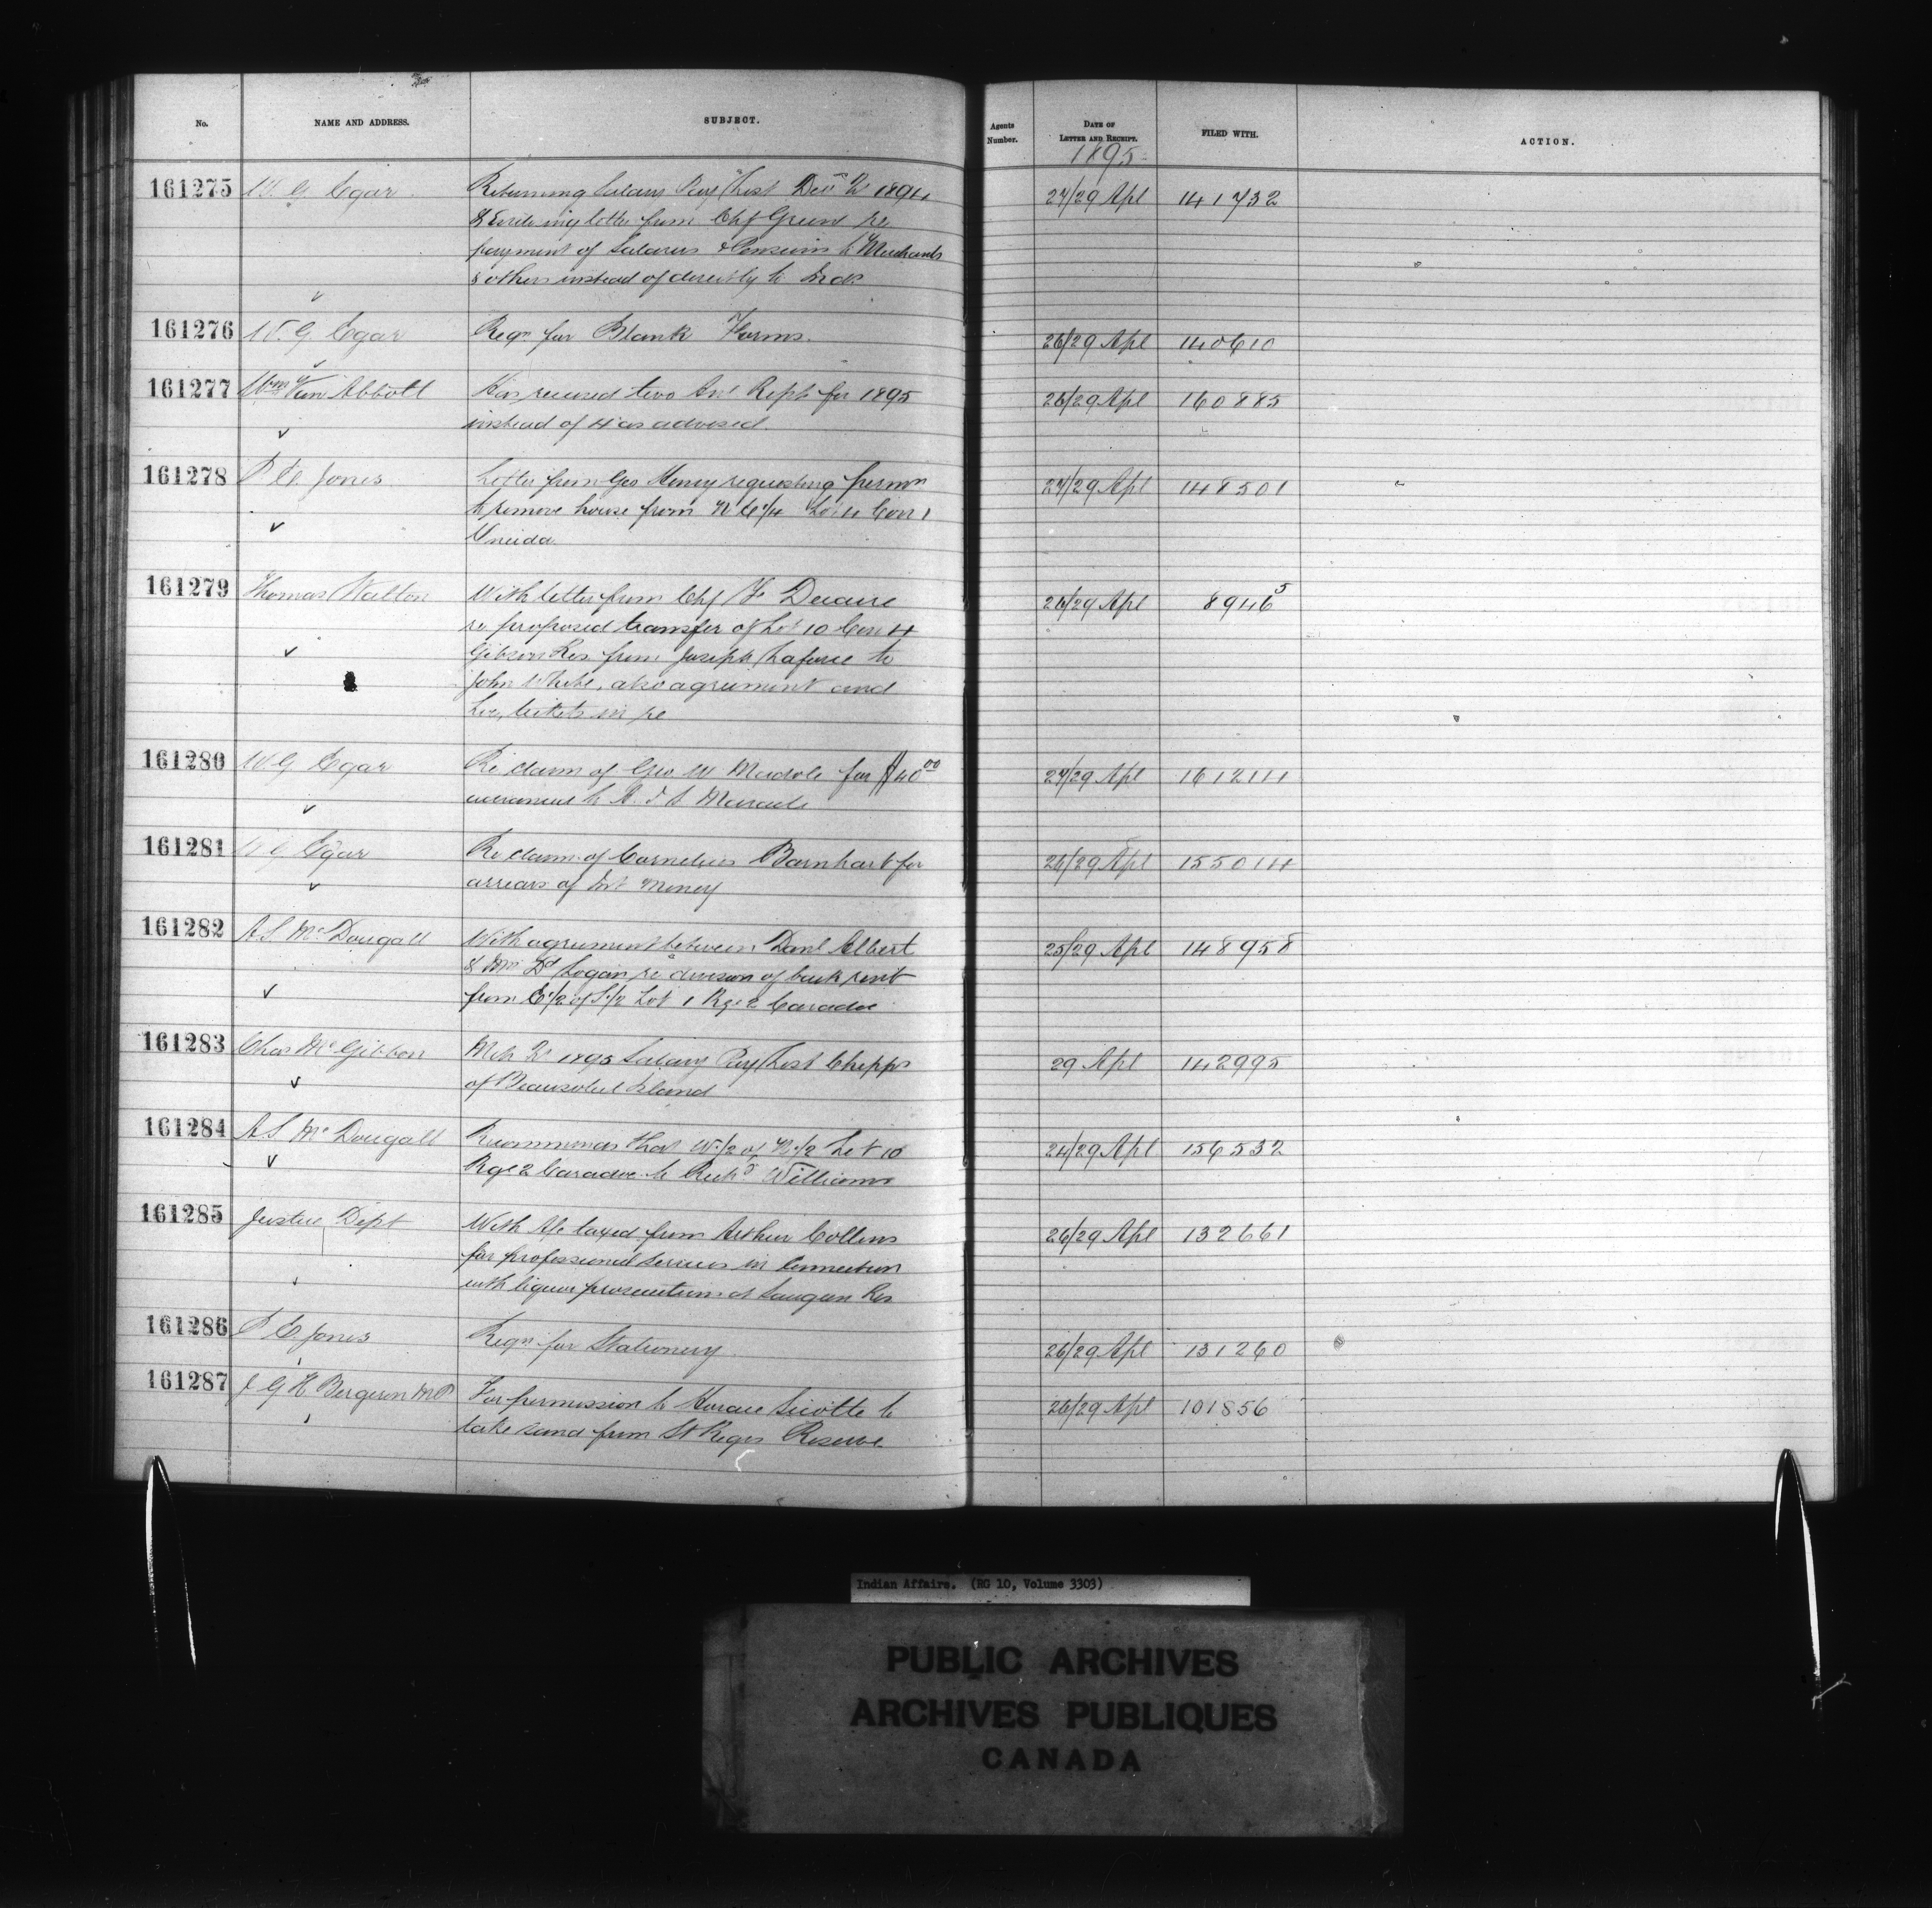 No. NAME AND ADDRESS. SUBJECT. Agents Number. DATE OF LETTER AND RECEIPT. FILED WITH. ACTION.
1895
161275 W. G. Egar Returning Salary Pay List Dec Qr 1894 27/29 Apl 141732
& Enclosing letter from Chf Green re
payment of Salaries & Pensions to Merchants
& others instead of directly to Inds
161276 W. G. Egar Reqn for Blank Forms. 26/29 Apl 140610
161277 Wm Van Abbott Has received two Anl Repts for 1895 26/29 Apl 160885
instead of 4 as advised.
161278 P. E. Jones Letter from Geo Henry requesting permn 27/29 Apl 148501
to remove house from N E 1/4 Lot 4 Con 1
Oneida
161279 Thomas Walton With letter from Chf F. Decaire 26/29 Apl 8946 5
re proposed transfer of Lot 10 Con 4
Gibson Res. from Joseph Laforce to
John White, also agreement and
Loc. tickets in re
161280 W G Egar Re claim of Geo W for $40 00 27/29 Apl 161214
161281 W G Egar Re claim of Cornelius Barnhart for 26/29 Apl 155014
arrears of Int Money
161282 A S McDougall With agreement between Danl Elbert 25/29 Apl 148958
& Mrs Logan re division of back rent
from E 1/2 of S 1/2 Lot 1 Rge 2 Caradoc
161283 Chas McGibbon Mch Qr 1895 Salary Pay List Chipps 29 Apl 142995
of Beausoleil Island
161284 A S McDougall Recommends that W 1/2 of N 1/2 Lot 10 24/29 Apl 156532
Rge 2 Caradoc to Richd Williams
161285 Justice Dept With A/c taxed from Arthur Collins 26/29 Apl 132661
for professional services in Connection
with liquor prosecutions at Saugeen Res
161286 P. E. Jones Reqn for Stationery 26/29 Apl 131260
161287 J G H Bergeron M.P. For permission to Horace Sicotte to 26/29 Apl 101856
take sand from St Regis Reserve
Indian Affairs. (RG 10, Volume 3303)
PUBLIC ARCHIVES
ARCHIVES PUBLIQUES
CANADA